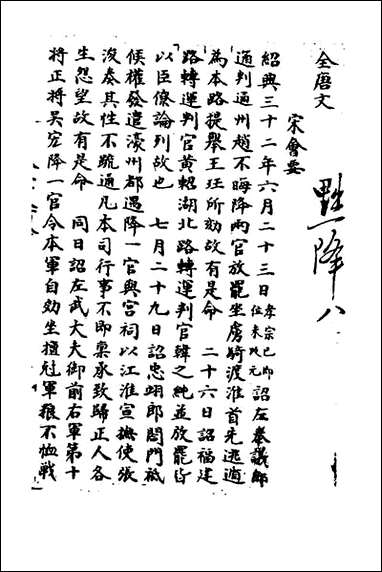 全唐文
宋會要
黜降八
紹興三十二年六月二十三日孝宗已即位未改元詔左奉議郎
通判通州趙不晦降兩官放罷坐虜騎渡淮首先逃遁
為本路提舉王珏所劾故有是命 二十六日詔福建
路轉運判官黃韜湖北路轉運判官韓之純並放罷皆
以臣僚論列故也 七月二十九日詔忠翊郎閤門祗
候權發遣濠州都遇降一官與宮祠以江淮宣撫使張
浚奏其性不疏通凡本司行事不即稟承致歸正人各
生怨望故有是命 同日詔左武大夫御前右軍第十
將正將吳宏降一官令本軍自効坐擅尅軍糧不恤戰